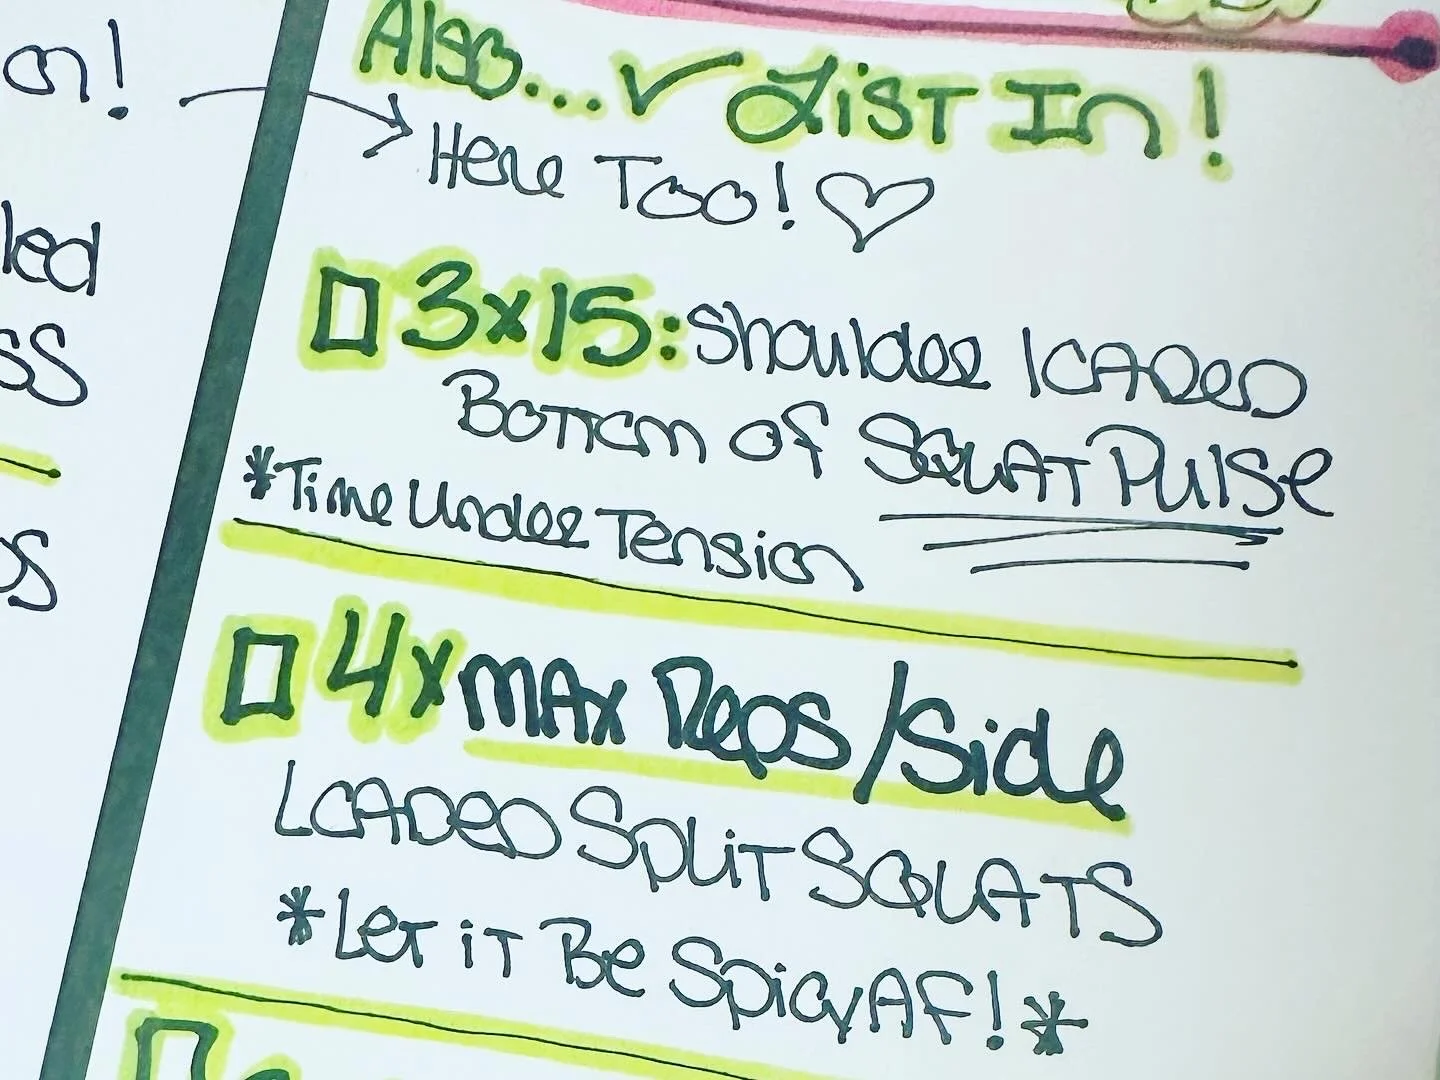 on!
led
ss
Also... ✓ List In!
→ Here Too! ♡
□ 3x15: Shoulder loaded
Bottom of Squat Pulse
*Time Under Tension
□ 4x Max Reps/Side
Loaded Split Squats
*Let it Be Spicy AF!*